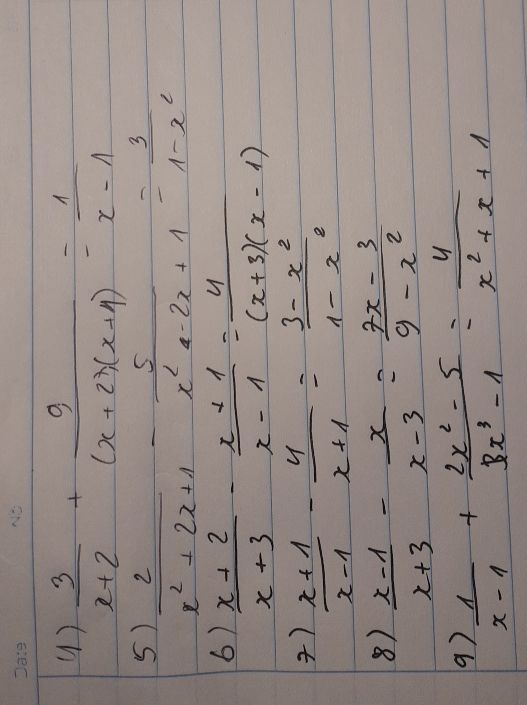 Date No
4) 3/(x+2) + 9/((x+2)(x+4)) = 1/(x-1)
5) 2/(x²+2x+1) - 5/(x²-2x+1) = 3/(1-x²)
6) (x+2)/(x+3) - (x+1)/(x-1) = 4/((x+3)(x-1))
7) (x+1)/(x-1) - 4/(x+1) = (3-x²)/(1-x²)
8) (x-1)/(x+3) - x/(x-3) = (7x-3)/(9-x²)
9) 1/(x-1) + (2x²-5)/(x³-1) = 4/(x²+x+1)